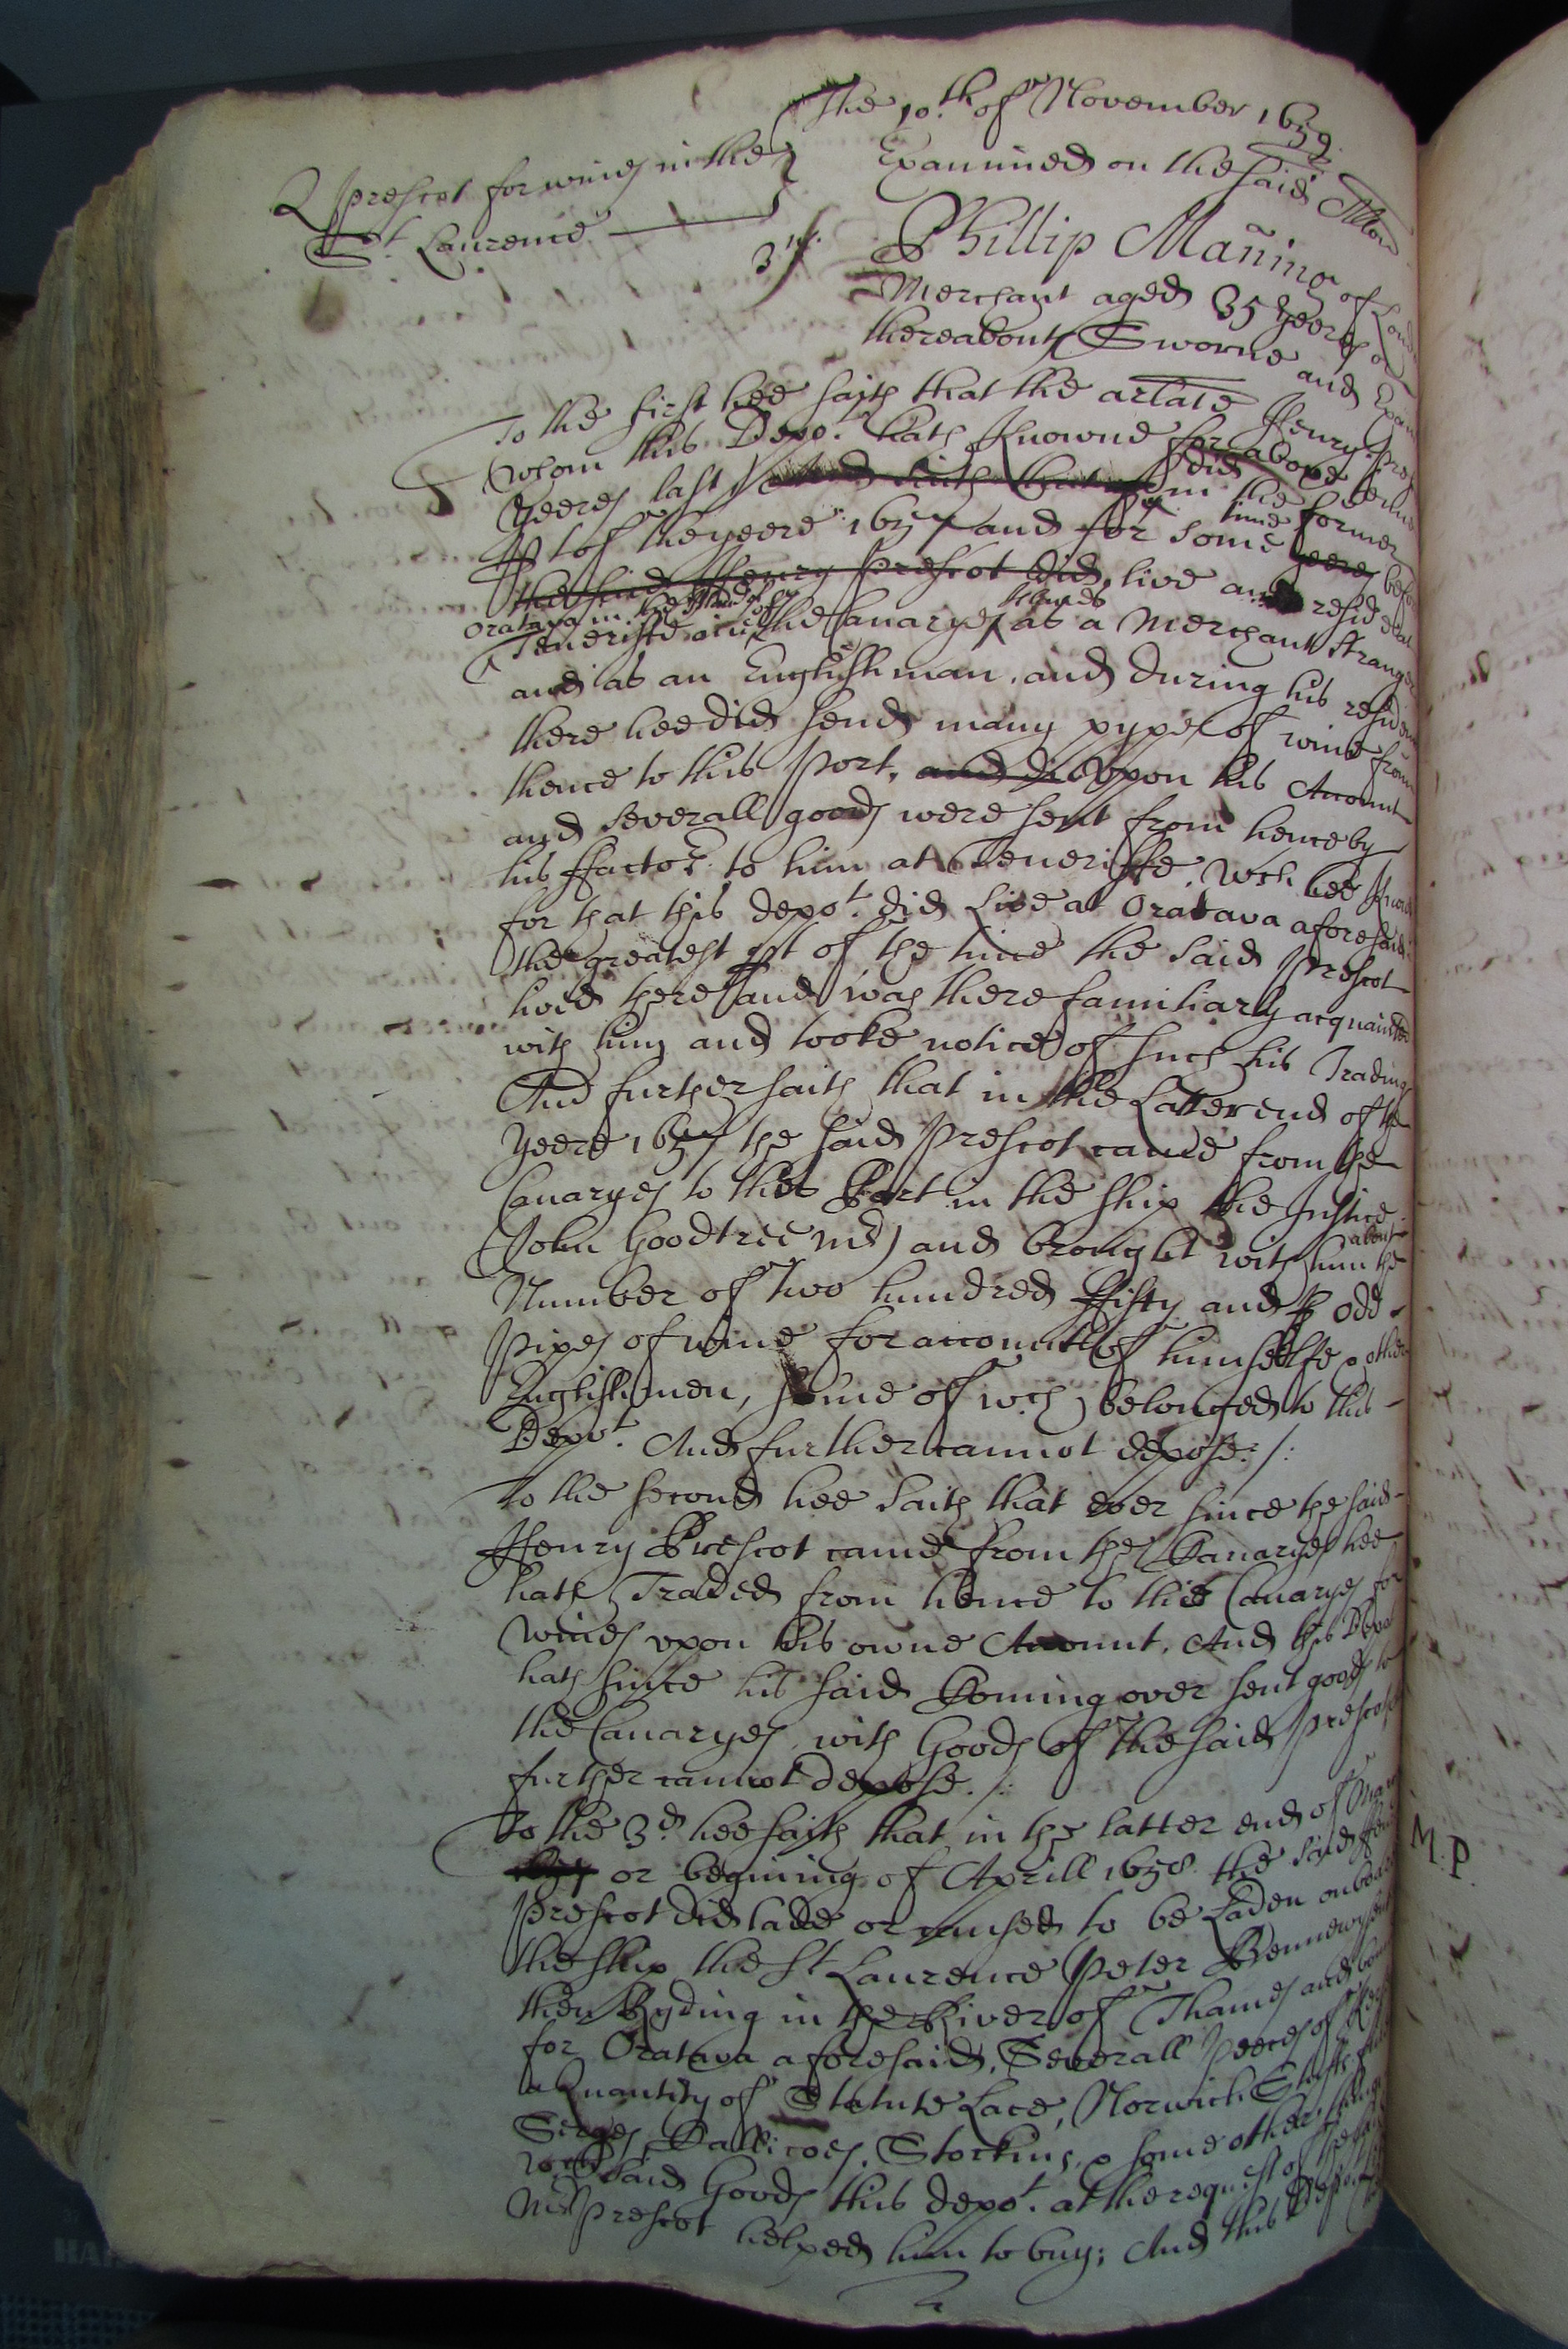 The 10.th of November 1659.
Examined on the said Allon
Prescot for wines in the
St. Laurence
3us.
Phillip Mañing of Lond
Merchant aged 35 yeeres or
thereabouts Sworne and Exam
To the first hee saith that the arlate Henry Pres
whom this Depot. hath Knowne for above
yeeres last did in the former
pt of the yeere 1657 and for some time before
the said Henry Prescot did live and reside at
Oratava in the Island of
Teneriffe one of the Canaryes Islands as a Merchant Stranger
and as an Englishman. and during his residence
there hee did send many pypes of wine from
thence to this Port, and di Vpon his Account
and severall goods were sent from hence by
his ffactor. to him at Teneriffe. wch hee Knowe
for that this depot. did Live at Oratava aforesaid
the greatest pt of the time the said Prescot
lived there and was there familiarly acquainted
with him and tooke notice of such his Trading
And further saith that in the Latter end of the
yeere 1657 the said Prescot came from the
Canaryes to this Port in the ship the Justice
(John Goodtree Mr) and brought with him about the
Number of Two hundred ffifty and odd
Pipes of wine for accompt of himselfe & other
Englishmen, some of wch belonged to this
Depot. And further cannot depose./:
To the second hee saith that ever since the said
Henry Prescot came from the Canaryes hee
hath Traded from hence to the Canaryes for
wines vpon his owne Account. And this Depot
hath since his said Coming over sent goods to
the Canaryes, with Goods of the said Prescot
further cannot depose./:
To the 3d. hee saith that in the latter end of Mar
1657 or begining of Aprill 1658. the said Hen
Prescot did lade or caused to be Laden onboard
the ship the St Laurence Peter
then Ryding in the River of Thames and bound
for Oratava aforesaid, Severall Peeces of
a Quantity of Statute Lace, Norwich Stuffs
Serges, Callicoes, Stockins, & some other things
wch said Goods this depot. at the request of the said
Mr Prescot helped him to buy; And this Deponent
M.P.